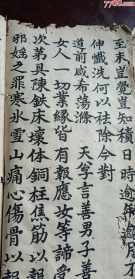 至未豈覺豈知積日時造
仲懺洗何以袪除今對
道前咸希蕩滌 天尊言善男子善
女人一切業緣皆有報應汝等諦受
次第具陳鉄床壞体銅柱焦筋以報
邪婬之罪寒氷雪山痛心傷骨以起